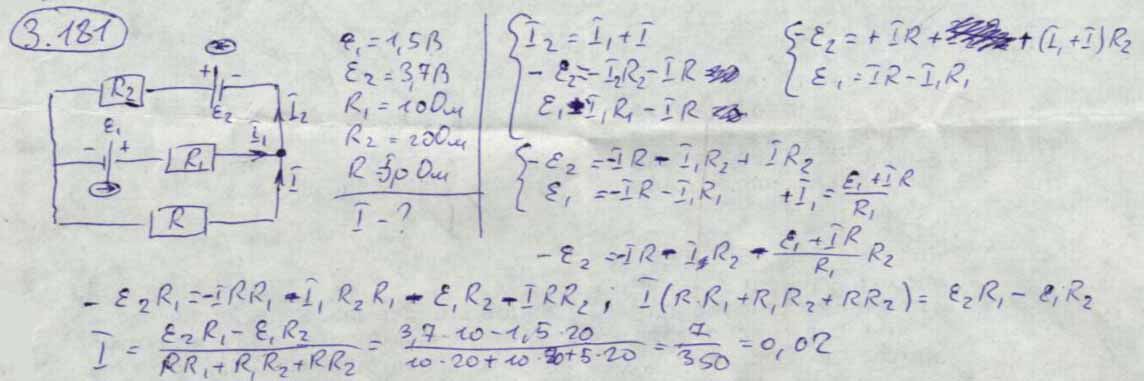 3.181
R₂ + - ε₂ I₂
ε₁ - + R₁ I₁
R I
ε₁ = 1,5 В
ε₂ = 3,7 В
R₁ = 10 Ом
R₂ = 20 Ом
R = 5,0 Ом
I - ?
I₂ = I₁ + I
- ε₂ = - I₂R₂ - IR
ε₁ I₁R₁ - IR
- ε₂ = + IR + + (I₁ + I) R₂
ε₁ = IR - I₁R₁
- ε₂ = - IR - I₁R₂ + IR₂
ε₁ = - IR - I₁R₁ + I₁ = (ε₁ + IR) / R₁
- ε₂ = - IR - I₁R₂ - (ε₁ + IR) / R₁ R₂
- ε₂R₁ = - IRR₁ - I₁R₂R₁ - ε₁R₂ - IRR₂ ; I(R·R₁ + R₁R₂ + RR₂) = ε₂R₁ - ε₁R₂
I = (ε₂R₁ - ε₁R₂) / (RR₁ + R₁R₂ + RR₂) = (3,7·10 - 1,5·20) / (10·20 + 10· + 5·20) = 7 / 350 = 0,02